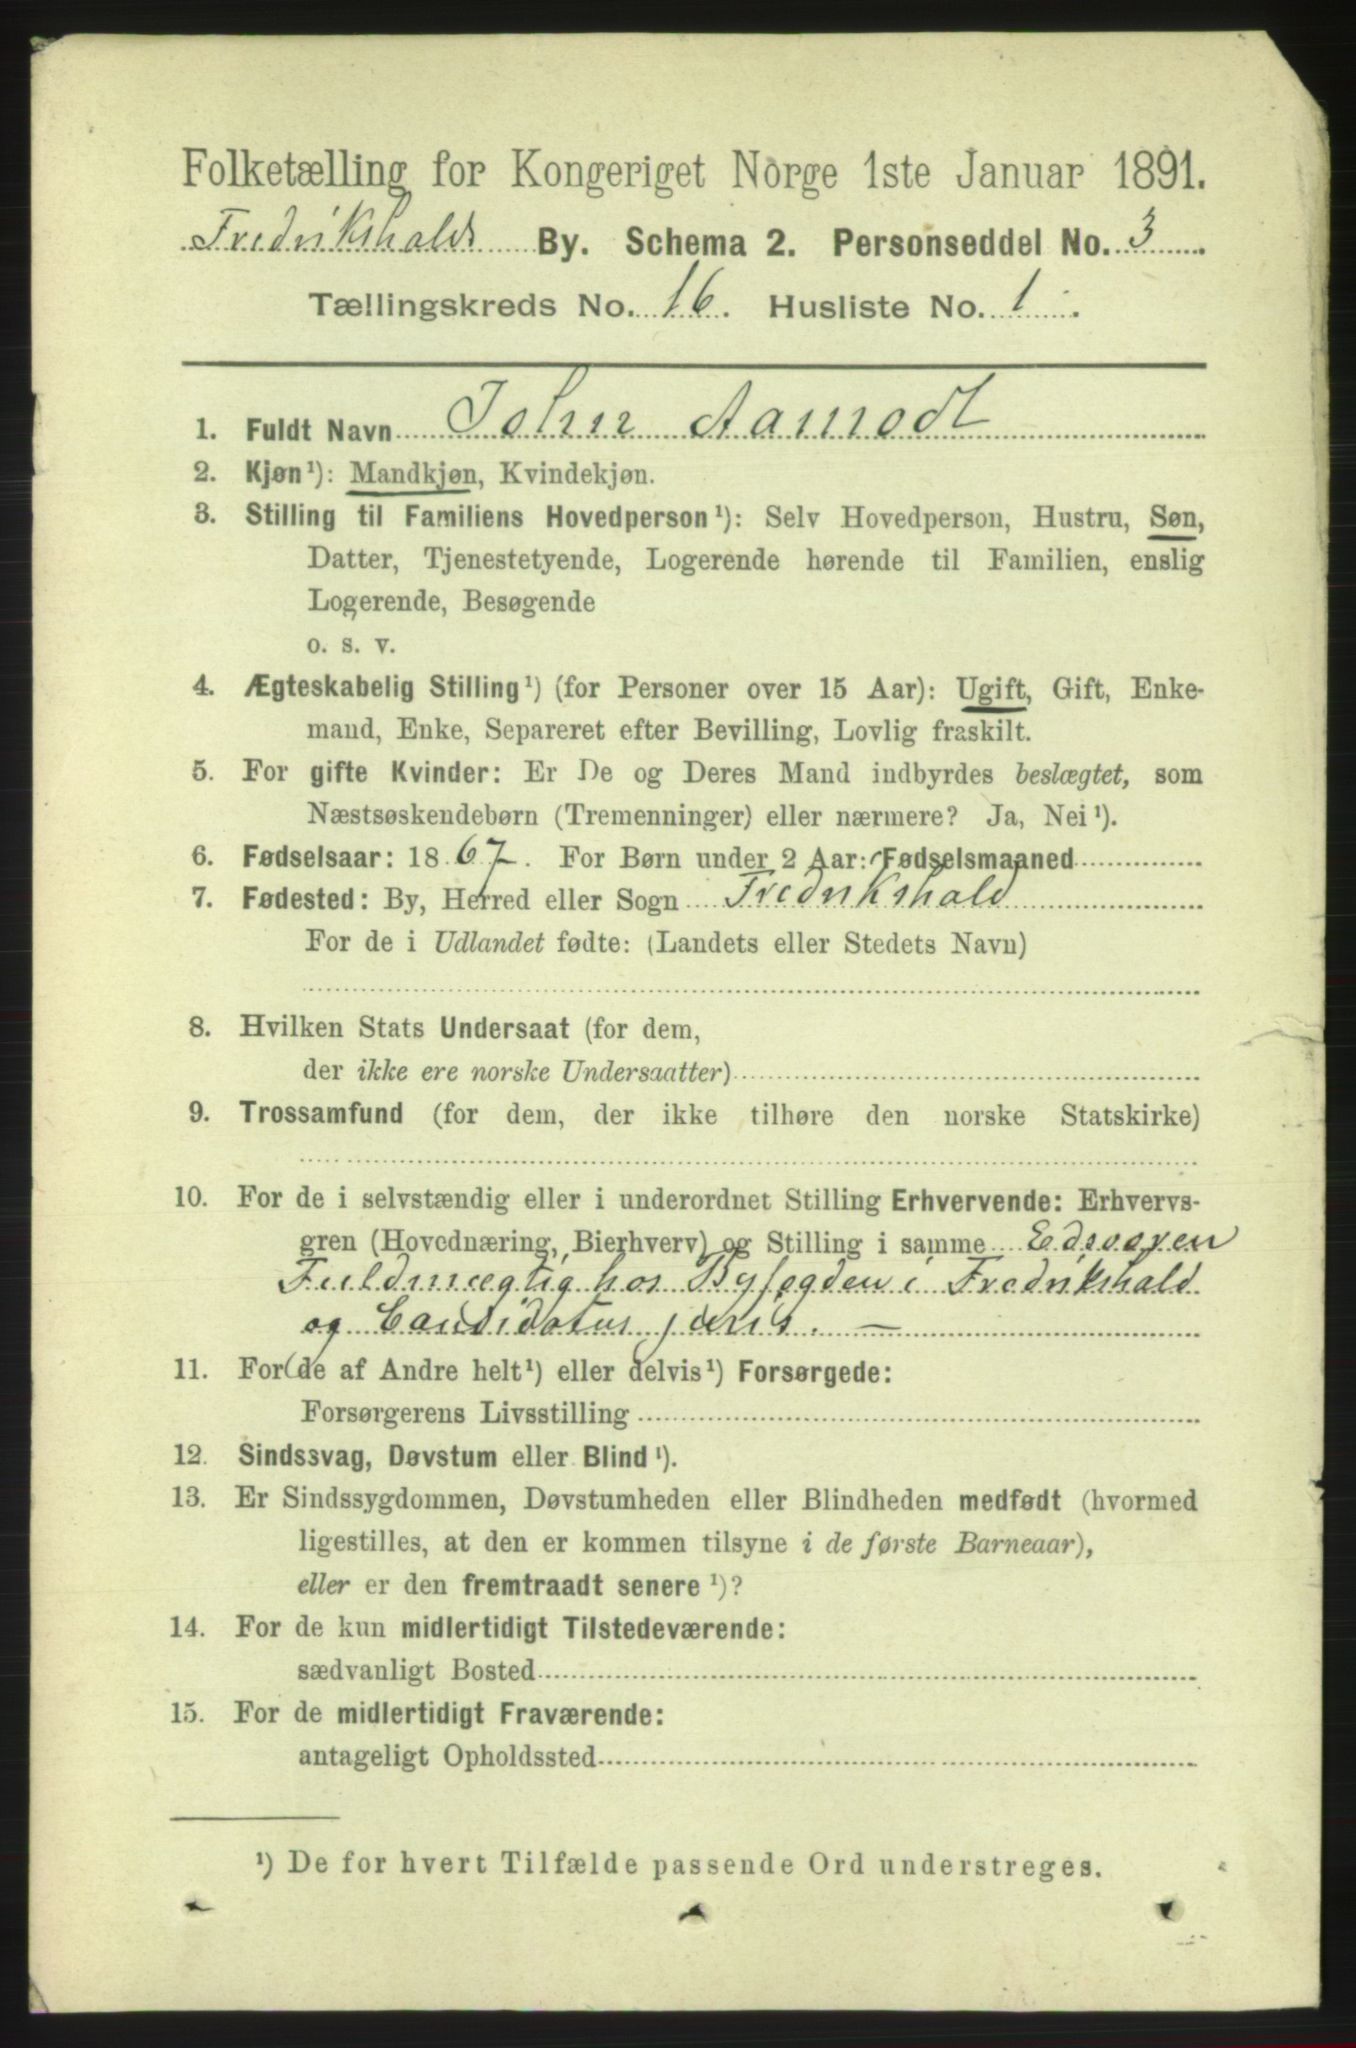 Folketælling for Kongeriget Norge 1ste Januar 1891.
Fredrikshalds By. Schema 2. Personseddel No. 3.
Tællingskreds No. 16. Husliste No. 1.
1. Fuldt Navn John Aamodt
2. Kjøn¹): Mandkjøn, Kvindekjøn.
3. Stilling til Familiens Hovedperson¹): Selv Hovedperson, Hustru, Søn,
Datter, Tjenestetyende, Logerende hørende til Familien, enslig
Logerende, Besøgende
o. s. v.
4. Ægteskabelig Stilling¹) (for Personer over 15 Aar): Ugift, Gift, Enke-
mand, Enke, Separeret efter Bevilling, Lovlig fraskilt.
5. For gifte Kvinder: Er De og Deres Mand indbyrdes beslægtet, som
Næstsøskendebørn (Tremenninger) eller nærmere? Ja, Nei¹).
6. Fødselsaar: 1867. For Børn under 2 Aar: Fødselsmaaned
7. Fødested: By, Herred eller Sogn Fredrikshald
For de i Udlandet fødte: (Landets eller Stedets Navn)
8. Hvilken Stats Undersaat (for dem,
der ikke ere norske Undersaatter)
9. Trossamfund (for dem, der ikke tilhøre den norske Statskirke)
10. For de i selvstændig eller i underordnet Stilling Erhvervende: Erhvervs-
gren (Hovednæring, Bierhverv) og Stilling i samme Edsvoren
Fuldmægtig hos Byfogden i Fredrikshald
og Candidatus juris. —
11. For de af Andre helt¹) eller delvis¹) Forsørgede:
Forsørgerens Livsstilling
12. Sindssvag, Døvstum eller Blind¹).
13. Er Sindssygdommen, Døvstumheden eller Blindheden medfødt (hvormed
ligestilles, at den er kommen tilsyne i de første Barneaar),
eller er den fremtraadt senere¹)?
14. For de kun midlertidigt Tilstedeværende:
sædvanligt Bosted
15. For de midlertidigt Fraværende:
antageligt Opholdssted
¹) De for hvert Tilfælde passende Ord understreges.